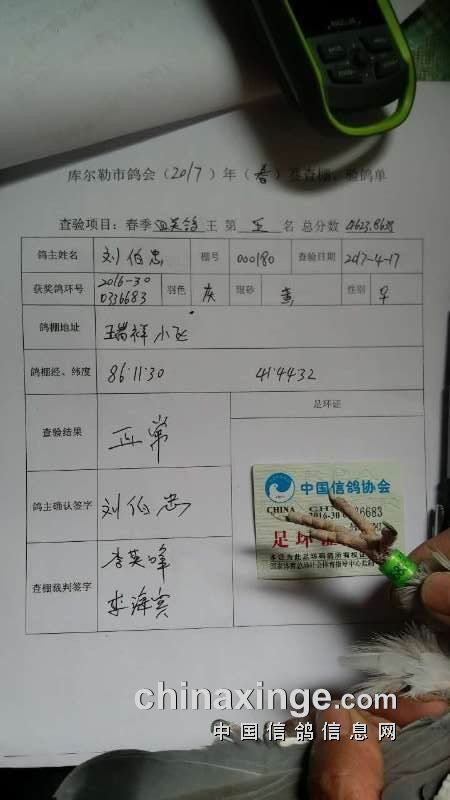 库尔勒市鸽会（2017）年（春）赛查棚、验鸽单
查验项目：春季四关鸽王 第 五 名 总分数
鸽主姓名 刘伯忠 棚号 000180 查验日期 2017-4-17
获奖鸽环号 2016-30 0336683 羽色 灰 眼砂 黄 性别 ♀
鸽棚地址 瑞祥小区
鸽棚经、纬度 86:11:30 41:44:32
查验结果 正常
足环证
鸽主确认签字 刘伯忠
查棚裁判签字 李英峰
李海宾
中国信鸽协会
CHINA
2016-30 36683
足环证
chinaxinge.com
中国信鸽信息网